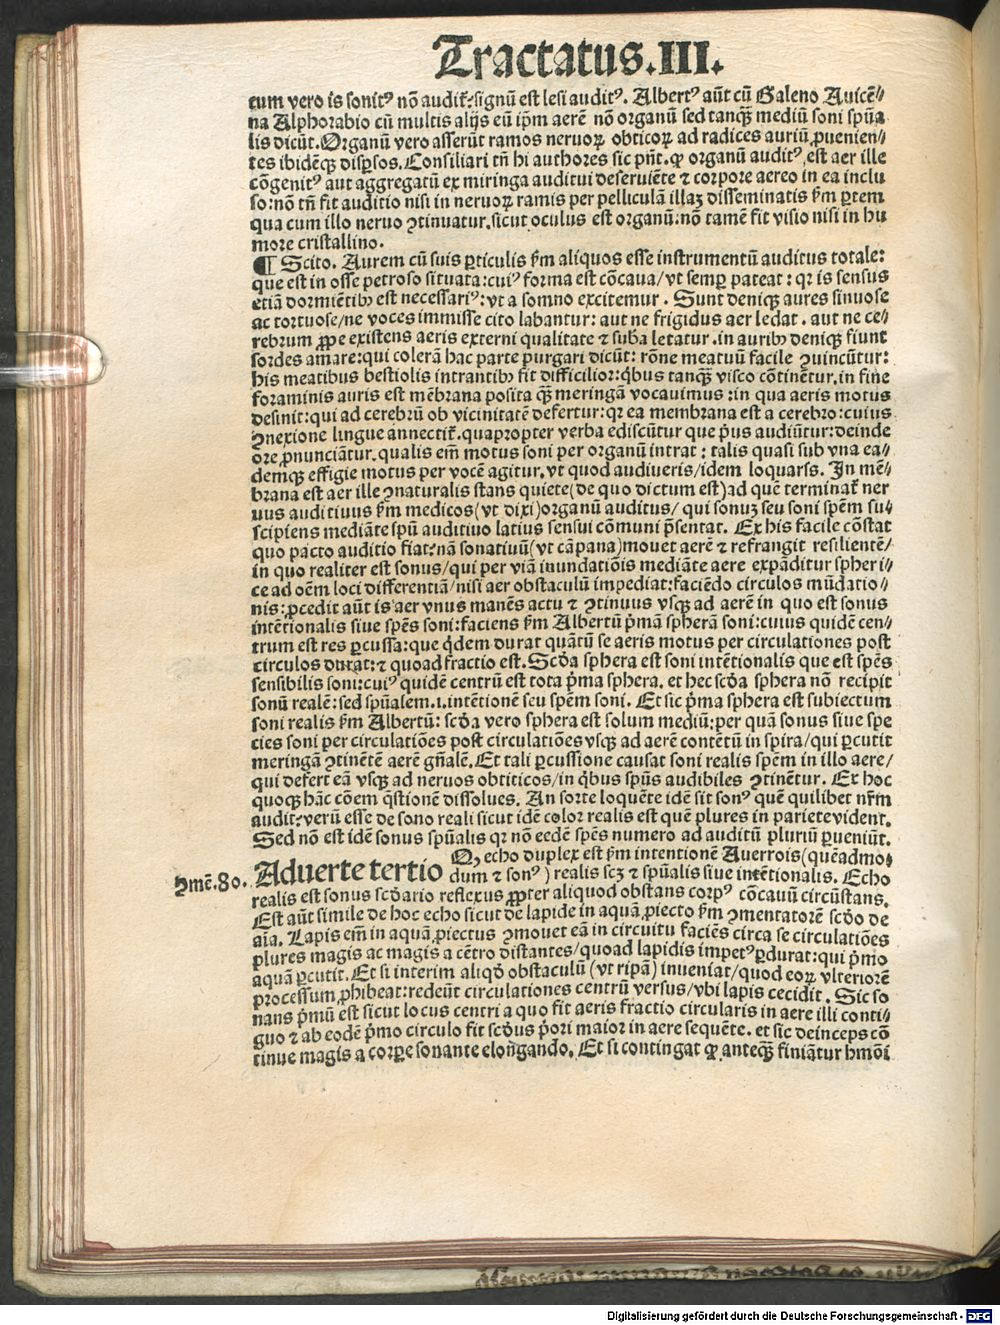 Tractatus.III.
tum vero is sonitꝰ nō auditꝛ̄:signū est lesi auditꝰ. Albertꝰ aūt cū Galeno Auicē⸗
na Alphorabio cū multis alijs eū ip̄m aerē nō organū sed tanqȝ̄ mediū soni spūa
lis dicūt. Organū vero asserūt ramos neruoꝝ obticoꝝ ad radices auriū ꝓuenien⸗
tes ibidēqȝ disp̱sos. Consiliari tn̄ hi authores sic pn̄t. ꝙ organū auditꝰ est aer ille
cōgenitꝰ aut aggregatū ex miringa auditui deseruiēte ⁊ corpore aereo in ea inclu
so:nō tn̄ fit auditio nisi in neruoꝝ ramis per pelliculā illaꝫ disseminatis ẜm ꝑtem
qua cum illo neruo ꝯtinuatur. sicut oculus est organū:nō tamē fit visio nisi in hu
more cristallino.
¶ Scito. Aurem cū suis ꝑticulis ẜm aliquos esse instrumentū auditus totale:
que est in osse petroso situata:cuiꝰ forma est cōcaua/vt semꝑ pateat: qꝛ is sensus
etiā dormiētibꝫ est necessariꝰ:vt a somno excitemur. Sunt deniqꝫ aures sinuose
ac tortuose/ne voces immisse cito labantur: aut ne frigidus aer ledat. aut ne ce⸗
rebrum ꝓpe existens aeris externi qualitate ⁊ sub̄a letatur. in auribꝫ deniqꝫ fiunt
sordes amare:qui colerā hac parte purgari dicūt: rōne meatuū facile ꝯuincūtur:
his meatibus bestiolis intrantibꝫ fit difficilior:qͥbus tanqȝ̄ visco cōtinētur. in fine
foraminis auris est mēbrana posita qȝ̄ meringā vocauimus:in qua aeris motus
desinit:qui ad cerebrū ob vicinitatē defertur:qꝛ ea membrana est a cerebro:cuius
ꝯnexione lingue annectitꝛ̄. quapropter verba ediscūtur que pͥus audiūtur:deinde
ore ꝓnunciātur. qualis em̄ motus soni per organū intrat: talis quasi sub vna ea⸗
demqꝫ effigie motus per vocē agitur. vt quod audiueris/idem loquaris. In mē⸗
brana est aer ille ꝯnaturalis stans quiete(de quo dictum est)ad quē terminatꝛ̄ ner
uus auditiuus ẜm medicos(vt dixi)organū auditus/ qui sonuꝫ seu soni spēm su⸗
scipiens mediāte spū auditiuo latius sensui cōmuni p̄sentat. Ex his facile cōstat
quo pacto auditio fiat:nā sonatiuū(vt cāpana)mouet aerē ⁊ refrangit resilientē/
in quo realiter est sonus/qui per viā inundatiōis mediāte aere expāditur spheri⸗
ce ad oēm loci differentiā/nisi aer obstaculū impediat:faciēdo circulos mūdatio⸗
nis:ꝓcedit aūt is aer vnus manēs actu ⁊ ꝯtinuus vsqꝫ ad aerē in quo est sonus
intētionalis siue spēs soni:faciens ẜm Albertū pͥmā spherā soni:cuius quidē cen⸗
trum est res ꝑcussa:que qͥdem durat quātū se aeris motus per circulationes post
circulos durat:⁊ quoad fractio est. Scd̄a sphera est soni intētionalis que est spēs
sensibilis soni:cuiꝰ quidē centrū est tota pͥma sphera. et hec scd̄a sphera nō recipit
sonū realē:sed spūalem.i.intētionē seu spēm soni. Et sic pͥma sphera est subiectum
soni realis ẜm Albertū: scd̄a vero sphera est solum mediū:per quā sonus siue spe
cies soni per circulatiōes post circulatiōes vsqꝫ ad aerē contētū in spira/qui ꝑcutit
meringā ꝯtinētē aerē gn̄alē. Et tali ꝑcussione causat soni realis spēm in illo aere/
qui defert eā vsqꝫ ad neruos obtiticos/in qͥbus spūs audibiles ꝯtinētur. Ex hoc
quoqꝫ hāc cōem qͥstionē dissolues. An sorte loquēte idē sit sonꝰ quē quilibet nr̄m
audit:verū esse de sono reali sicut idē color realis est quē plures in pariete vident.
Sed nō est idē sonus spūalis qꝛ nō eedē spēs numero ad auditū pluriū ꝑueniūt.
ꝯmē.80. Aduerte tertio Qꝫ echo duplex est ẜm intentionē Auerrois(quēadmo⸗
dum ⁊ sonꝰ) realis scꝫ ⁊ spūalis siue intētionalis. Echo
realis est sonus scd̄ario reflexus ꝓpter aliquod obstans corpꝰ cōcauū circūstans.
Est aūt simile de hoc echo sicut de lapide in aquā ꝓiecto ẜm ꝯmentatorē scd̄o de
aīa. Lapis em̄ in aquā ꝓiectus ꝯmouet eā in circuitu faciēs circa se circulatiōes
plures magis ac magis a cētro distantes/quoad lapidis impetꝰ ꝑdurat:qui pͥmo
aquā ꝑcutit. Et si interim aliqd̄ obstaculū (vt ripā) inueniat/quod eoꝝ vlteriorē
processum ꝓhibeat:redeūt circulationes centrū versus/vbi lapis cecidit. Sic so
nans pͥmū est sicut locus centri a quo fit aeris fractio circularis in aere illi conti⸗
guo ⁊ ab eodē pͥmo circulo fit scd̄us pͥori maior in aere sequēte. et sic deinceps cō
tinue magis a corꝑe sonante elongando. Et si contingat ꝙ anteqȝ̄ finiātur hmōi
Digitalisierung gefördert durch die Deutsche Forschungsgemeinschaft - DFG